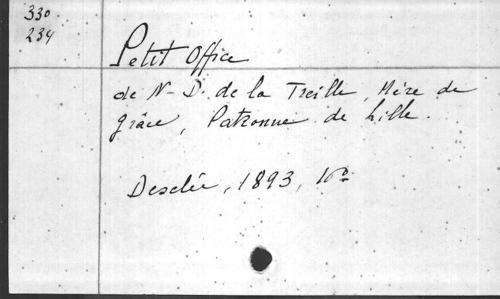 330
234
Petit Office
de N-D. de la Treille, Mère de
grâce, Patronne de Lille.
Desclée, 1893, 16º